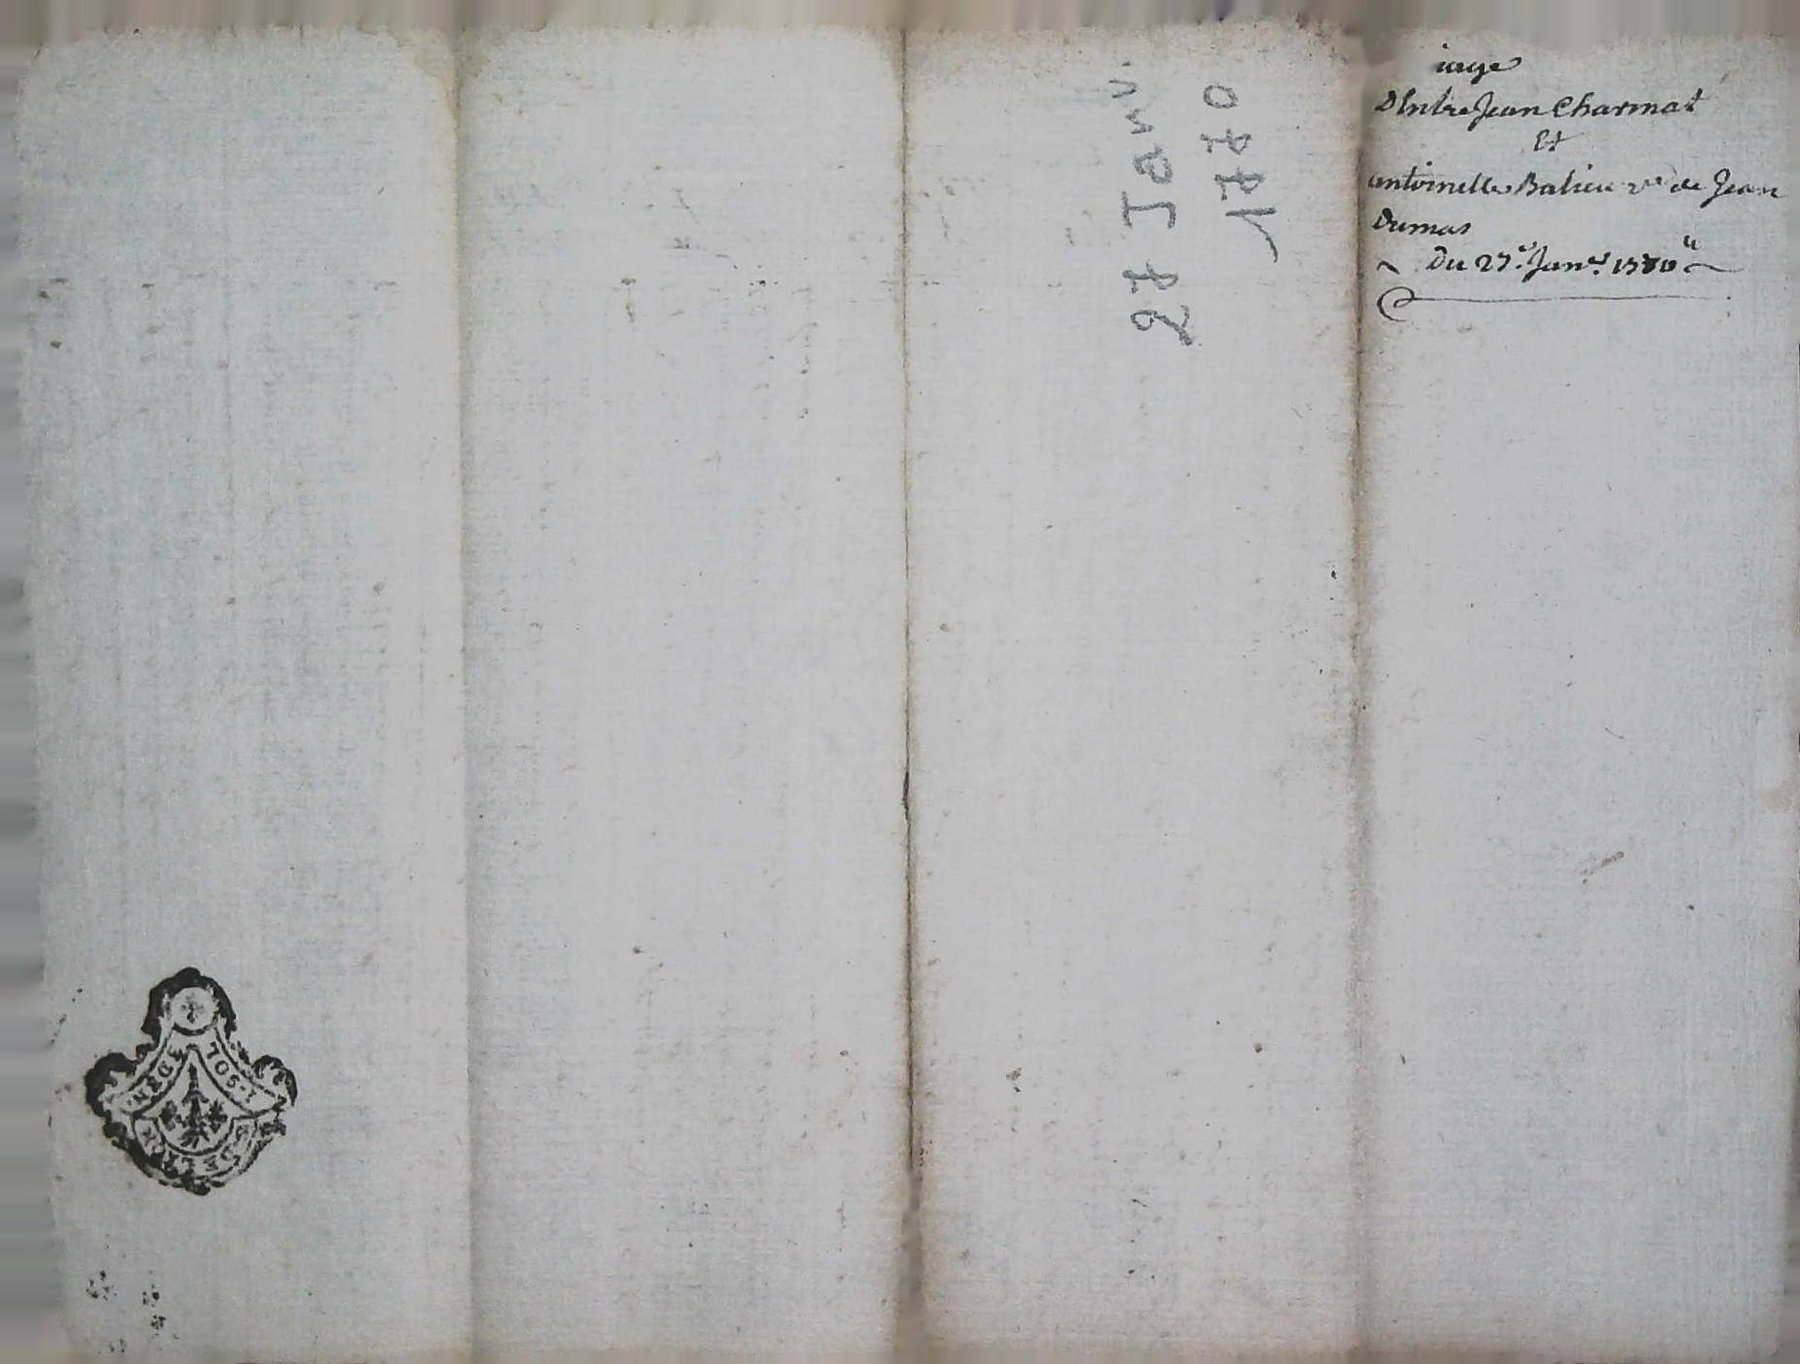 iage
D'Entre Jean Charmat
Et
antoinette Balieu ve de Jean
Dumas
Du 27e Janer 1770
27 Janv
1770
1·SOL